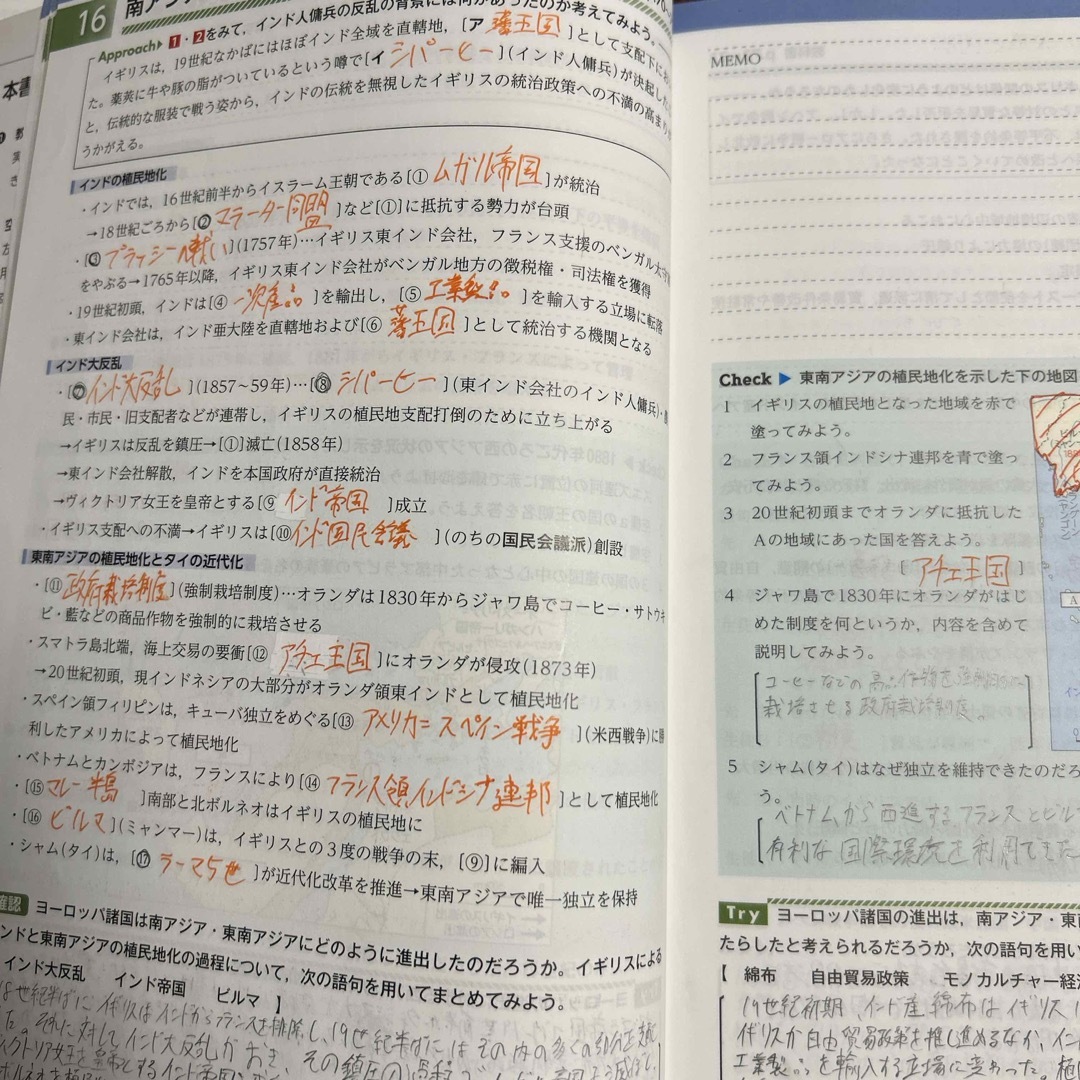 16 南アジア
Approach▶ 1・2をみて，インド人傭兵の反乱の背景には何があったのか考えてみよう。
イギリスは，19世紀なかばにはほぼインド全域を直轄地，[ア 藩王国 ]として支配下にお
た。薬莢に牛や豚の脂がついているという噂で[イ シパーヒー ](インド人傭兵)が決起した
と，伝統的な服装で戦う姿から，インドの伝統を無視したイギリスの統治政策への不満の高まりが
うかがえる。
インドの植民地化
・インドでは，16世紀前半からイスラーム王朝である[① ムガル帝国 ]が統治
→18世紀ごろから[❷ マラーター同盟 ]など[①]に抵抗する勢力が台頭
・[❸ プラッシーの戦い](1757年)…イギリス東インド会社，フランス支援のベンガル太守
をやぶる→1765年以降，イギリス東インド会社がベンガル地方の徴税権・司法権を獲得
・19世紀初頭，インドは[④ 一次産品 ]を輸出し，[⑤ 工業製品 ]を輸入する立場に転落
・東インド会社は，インド亜大陸を直轄地および[⑥ 藩王国 ]として統治する機関となる
インド大反乱
・[❼インド大反乱](1857～59年)…[❽ シパーヒー ](東インド会社のインド人傭兵)・
民・市民・旧支配者などが連帯し，イギリスの植民地支配打倒のために立ち上がる
→イギリスは反乱を鎮圧→[①]滅亡(1858年)
→東インド会社解散，インドを本国政府が直接統治
→ヴィクトリア女王を皇帝とする[⑨ インド帝国 ]成立
・イギリス支配への不満→イギリスは[⑩インド国民会議 ](のちの国民会議派)創設
東南アジアの植民地化とタイの近代化
・[⑪政府栽培制度](強制栽培制度)…オランダは1830年からジャワ島でコーヒー・サトウキ
ビ・藍などの商品作物を強制的に栽培させる
・スマトラ島北端，海上交易の要衝[⑫ アチェ王国 ]にオランダが侵攻(1873年)
→20世紀初頭，現インドネシアの大部分がオランダ領東インドとして植民地化
・スペイン領フィリピンは，キューバ独立をめぐる[⑬ アメリカ=スペイン戦争 ](米西戦争)に勝
利したアメリカによって植民地化
・ベトナムとカンボジアは，フランスにより[⑭ フランス領インドシナ連邦 ]として植民地化
・[⑮ マレー半島 ]南部と北ボルネオはイギリスの植民地に
・[⑯ ビルマ ](ミャンマー)は，イギリスとの3度の戦争の末，[⑨]に編入
・シャム(タイ)は，[⓱ ラーマ5世 ]が近代化改革を推進→東南アジアで唯一独立を保持
確認 ヨーロッパ諸国は南アジア・東南アジアにどのように進出したのだろうか。イギリスによる
ンドと東南アジアの植民地化の過程について，次の語句を用いてまとめてみよう。
インド大反乱 インド帝国 ビルマ 】
世紀半ばに イギリスはインドからフランスを排除し，19世紀半ばには その内の多くの
た。それに対して インド大反乱がおき，その鎮圧の過程で
クトリア女王を皇帝とするインド帝国
MEMO
Check ▶ 東南アジアの植民地化を示した下の地図
1 イギリスの植民地となった地域を赤で
塗ってみよう。
2 フランス領インドシナ連邦を青で塗っ
てみよう。
3 20世紀初頭までオランダに抵抗した
Aの地域にあった国を答えよう。
[ アチェ王国 ]
4 ジャワ島で1830年にオランダがはじ
めた制度を何というか，内容を含めて
説明してみよう。
コーヒーなどの商品作物を強制的に
栽培させる政府栽培制度。
5 シャム(タイ)はなぜ独立を維持できたのだろ
う。
ベトナムから西進するフランスとビル
有利な国際環境を利用できた
Try ヨーロッパ諸国の進出は，南アジア・東
たらしたと考えられるだろうか，次の語句を用い
【 綿布 自由貿易政策 モノカルチャー経
19世紀初期，インド産綿布はイギリス
イギリスが自由貿易政策を推し進めるなか，イン
工業製品を輸入する立場に変わった。